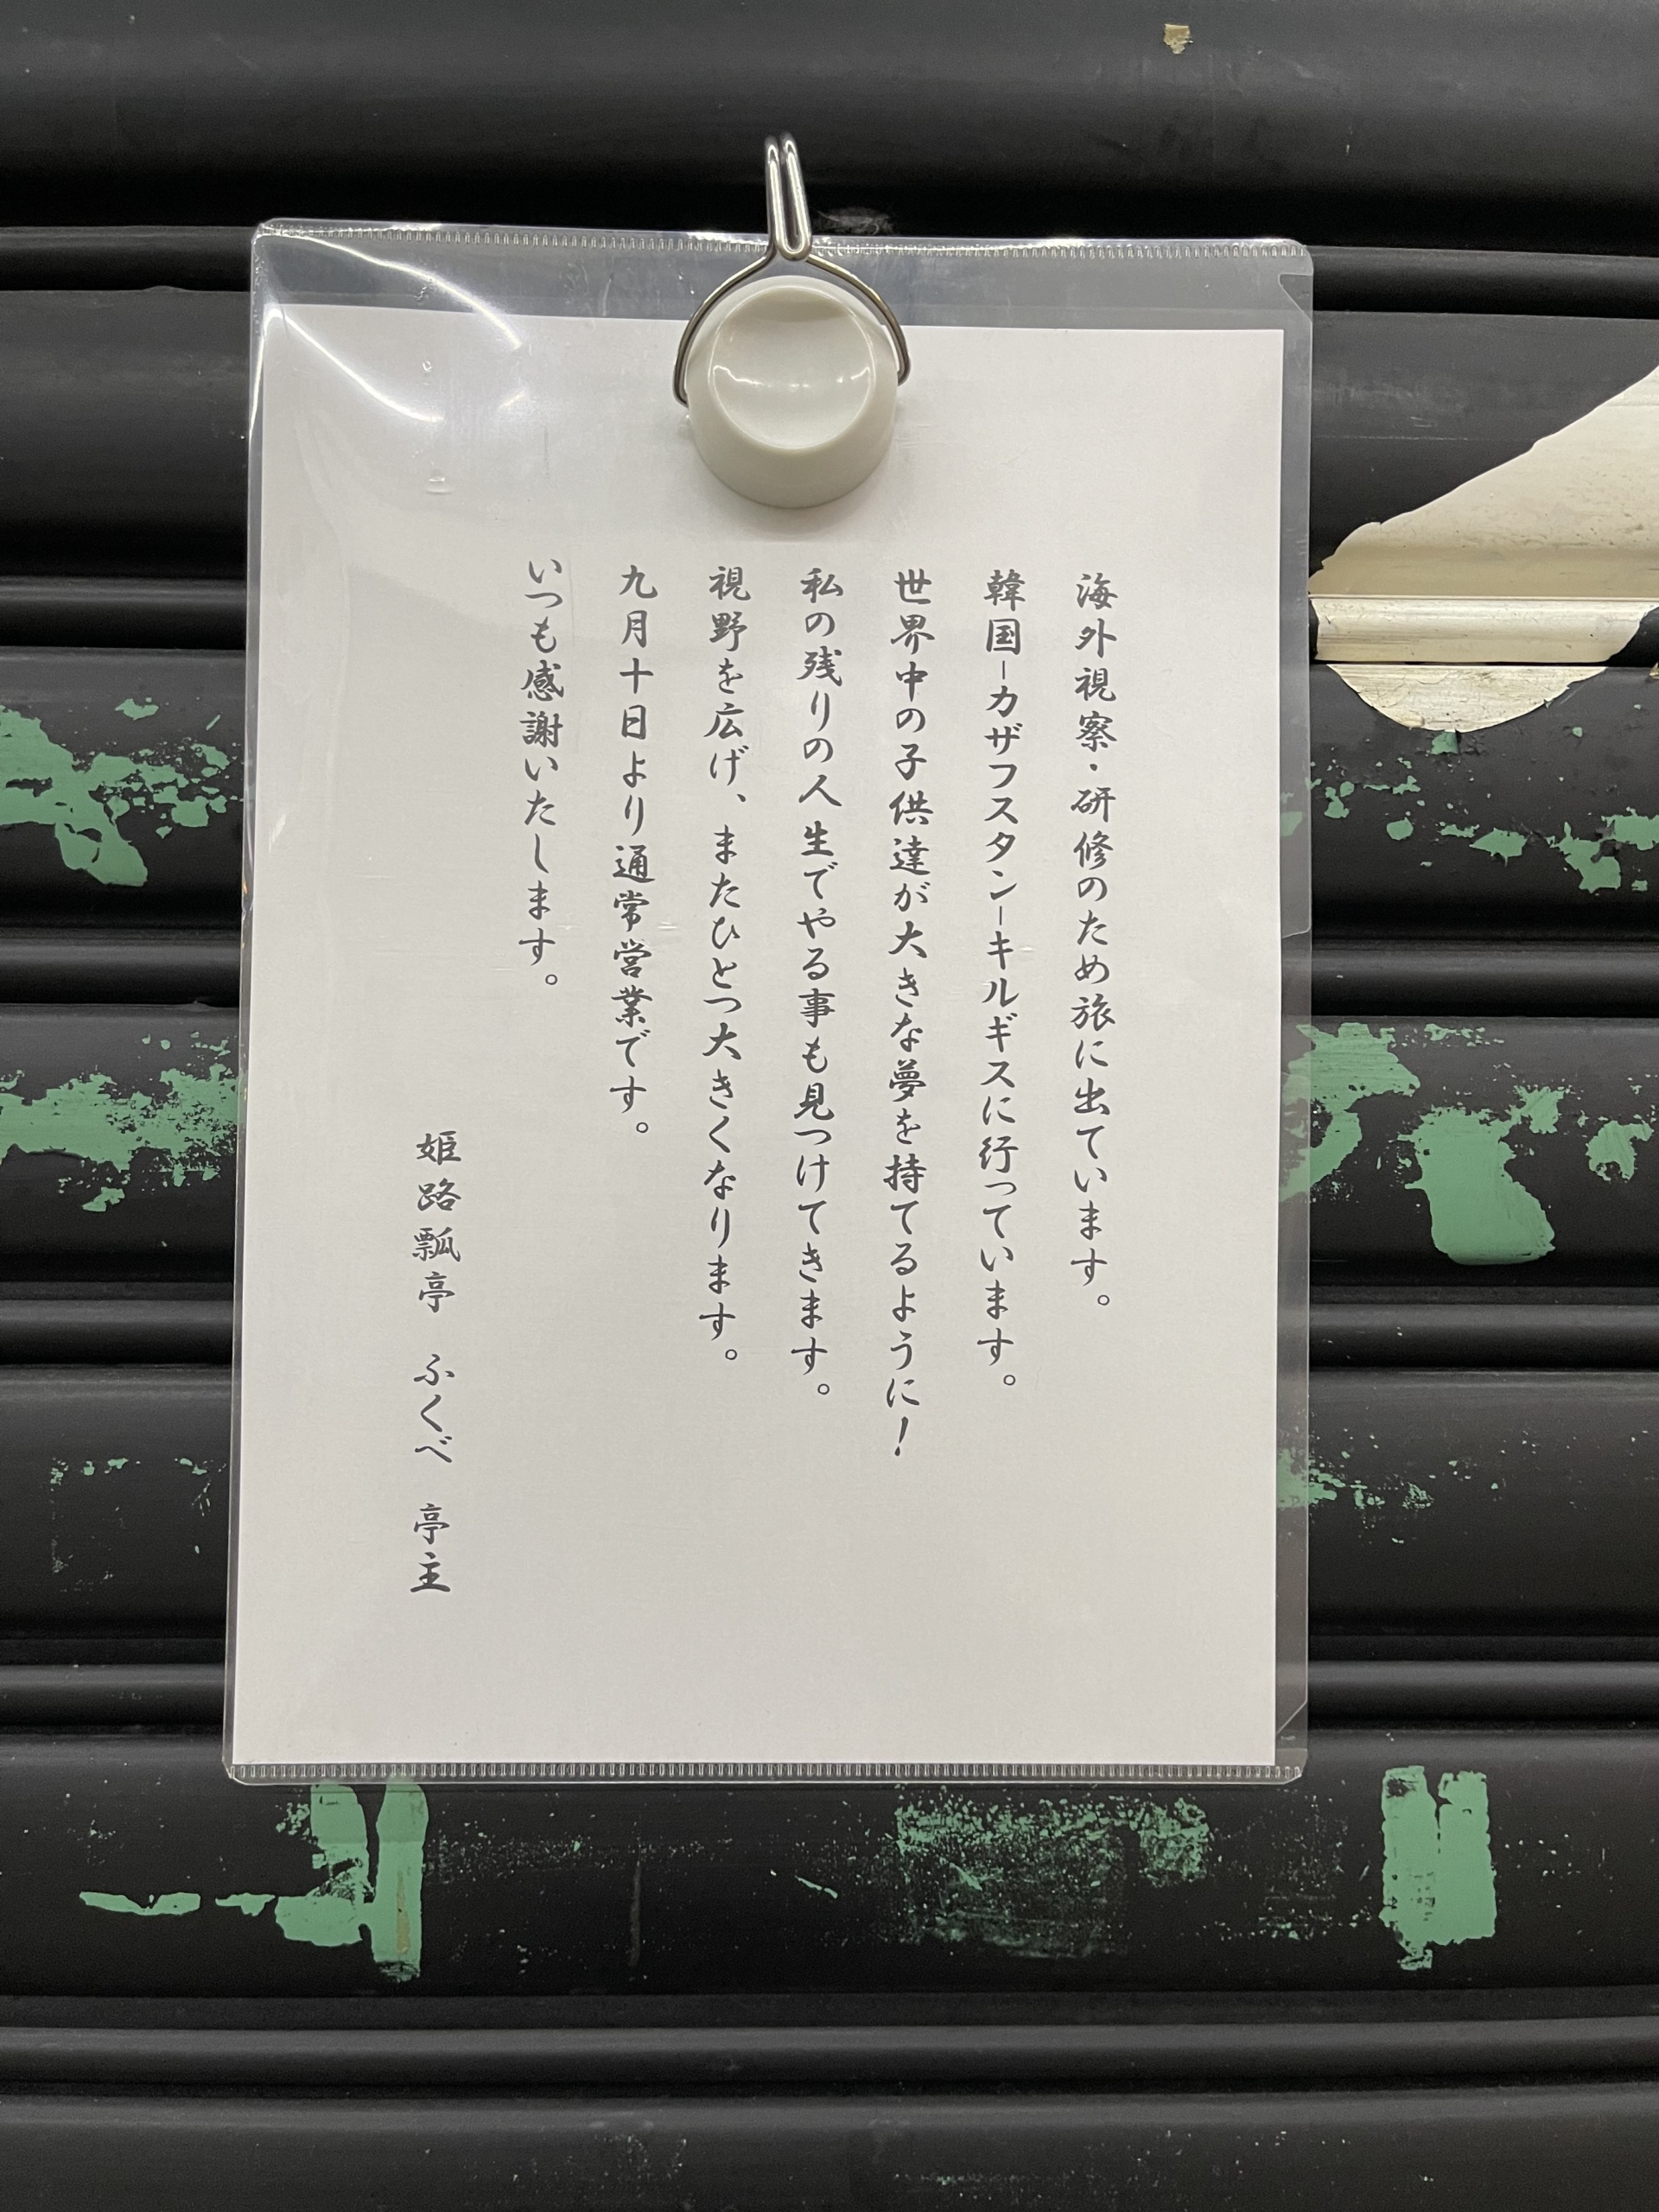 海外視察・研修のため旅に出ています。
韓国−カザフスタン−キルギスに行っています。
世界中の子供達が大きな夢を持てるように！
私の残りの人生でやる事も見つけてきます。
視野を広げ、またひとつ大きくなります。
九月十日より通常営業です。
いつも感謝いたします。
姫路瓢亭　ふくべ　亭主